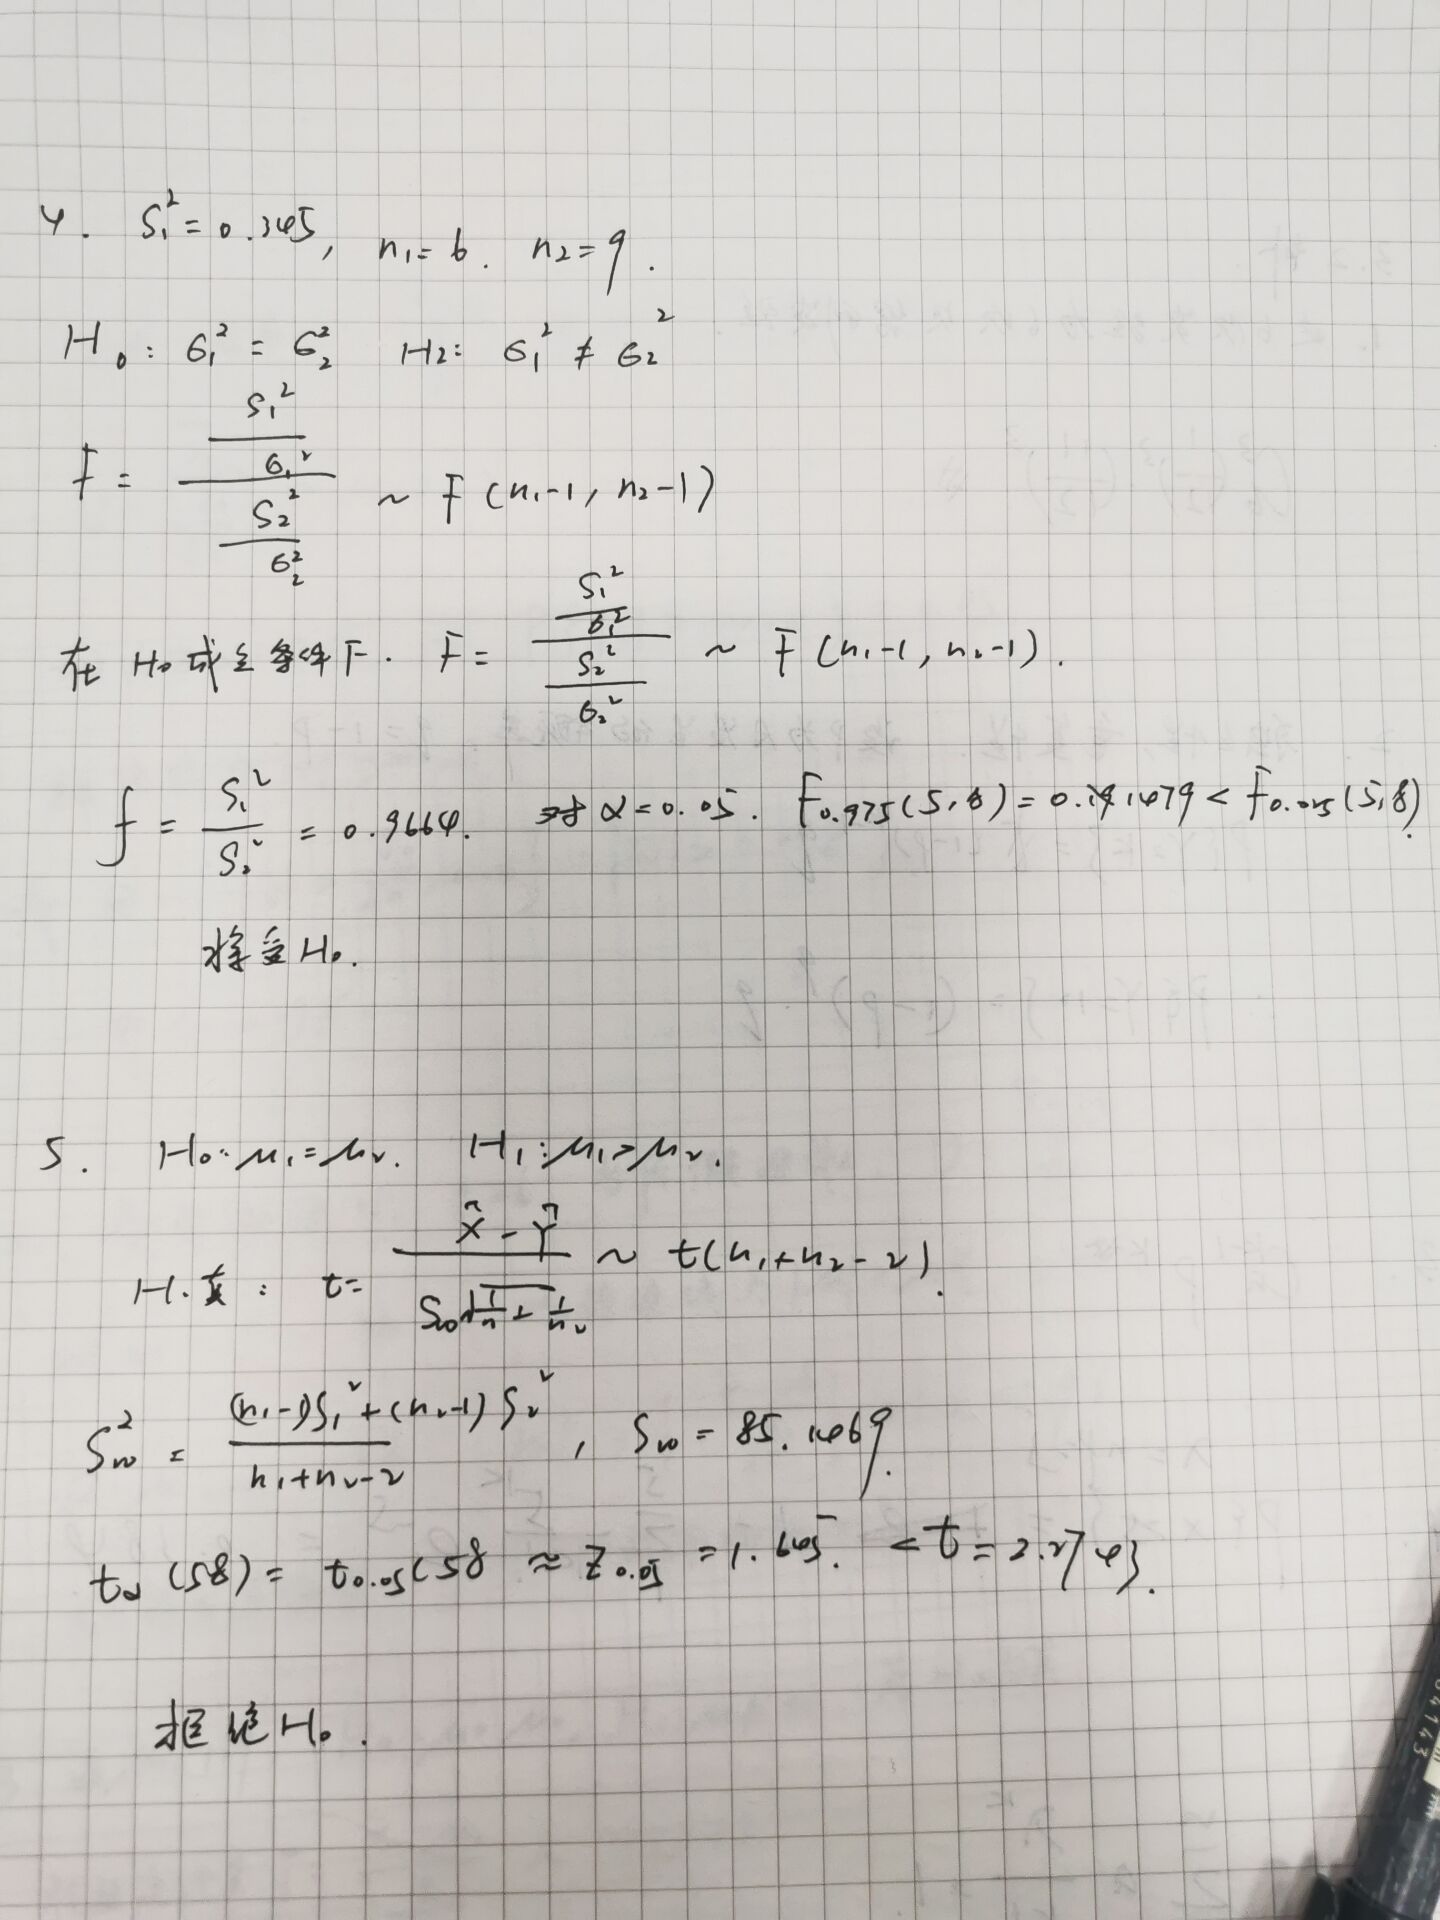 4. S₁² = 0.345, n₁ = 6. n₂ = 9.
H₀: σ₁² = σ₂² H₂: σ₁² ≠ σ₂²
F = (S₁²/σ₁²)/(S₂²/σ₂²) ~ F(n₁-1, n₂-1)
在H₀成立条件下. F = (S₁²/σ₁²)/(S₂²/σ₂²) ~ F(n₁-1, n₂-1).
f = S₁²/S₂² = 0.9664. 对 α=0.05. F0.975(5,8) = 0.1479 < F0.025(5,8).
接受H₀.
5. H₀: μ₁=μ₂. H₁: μ₁>μ₂.
H.真: t = (X̄ - Ȳ)/(Sw√(1/n + 1/n₂)) ~ t(n₁+n₂-2).
Sw² = ((n₁-1)S₁²+(n₂-1)S₂²)/(n₁+n₂-2), Sw = 85.4469.
tα(58) = t0.05(58 ≈ Z0.05 = 1.645. < t = 2.2743.
拒绝H₀.
04143